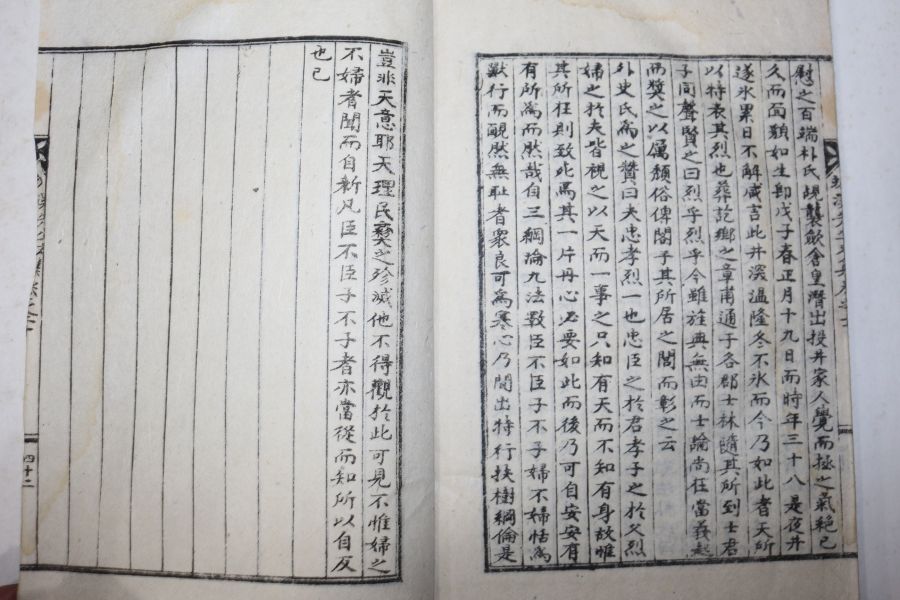 慰之百端朴氏覘襲斂倉皇潛出投井家人覺而拯之氣絶已
久而面顏如生卽戊子春正月十九日而時年三十八是夜井
遂氷累日不解咸言此井深溫隆冬不氷而今乃如此者天所
以特表其烈也葬訖鄉之章甫通于各郡士林隨其所到士君
子同聲賢之曰烈乎烈乎今雖旌典無由而士論尚在當義起
而奬之以厲頹俗俾閣于其所居之閭而彰之云
外史氏爲之贊曰夫忠孝烈一也忠臣之於君孝子之於父烈
婦之於夫皆視之以天而一事之只知有天而不知有身故惟
其所在則致死焉其一片丹心必要如此而後乃可自安安有
有所爲而然哉自三綱淪九法斁臣不臣子不子婦不婦恬爲
獸行而靦然無耻者衆良可爲寒心乃間出特行扶樹綱倫是
豈非天意耶天理民彛之殄滅他不得觀於此可見不惟婦之
不婦者聞而自新凡臣不臣子不子者亦當從而知所以自反
也已
四十二